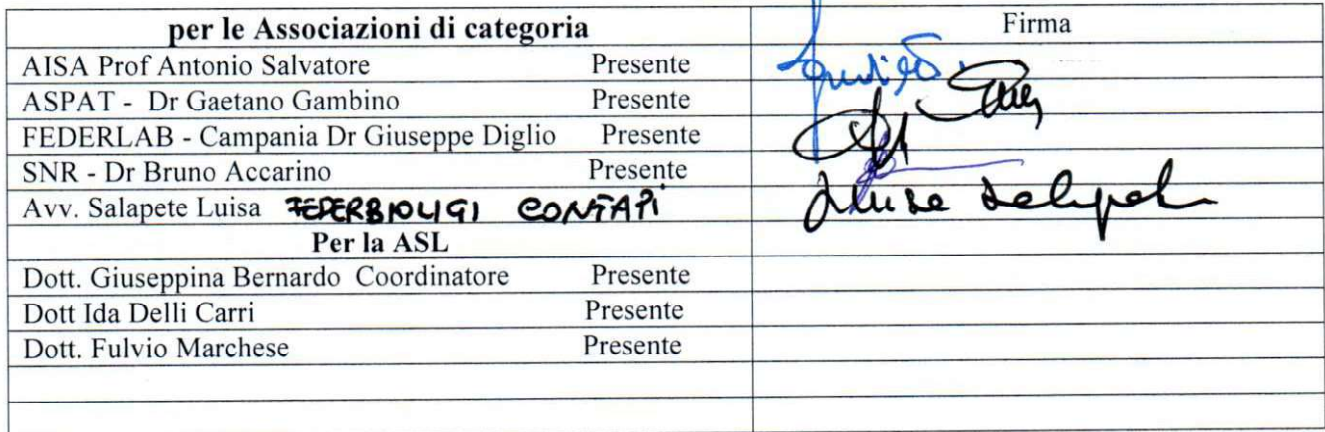 per le Associazioni di categoria Firma
AISA Prof Antonio Salvatore Presente
ASPAT - Dr Gaetano Gambino Presente
FEDERLAB - Campania Dr Giuseppe Diglio Presente
SNR - Dr Bruno Accarino Presente
Avv. Salapete Luisa FEDERBIOLIGI CONFAPI Luisa
Per la ASL
Dott. Giuseppina Bernardo Coordinatore Presente
Dott Ida Delli Carri Presente
Dott. Fulvio Marchese Presente